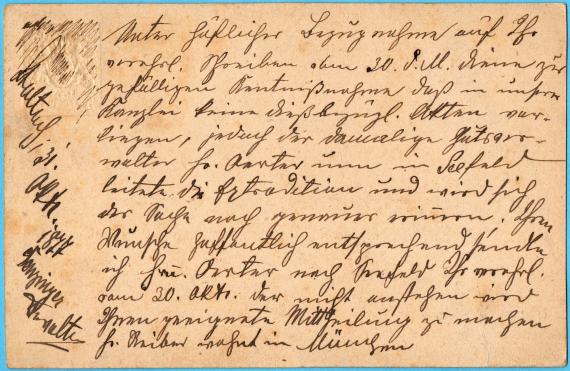 Unter höflicher Bezugnahme auf Ihr
verehrl. Schreiben vom 30. d. M. diene zur
gefälligen Kenntnißnahme daß in unserer
Kanzlei keine dießbezügl. Akten vor-
liegen, jedoch der damalige Gutsver-
walter Hr. Oerter nun in Seefeld
leitete die Extradition und wird sich
der Sache noch genauer erinnern. Ihrem
Wunsche hoffentlich entsprechend sende
ich Hrn. Oerter nach Seefeld Ihr verehrl.
vom 30. Okt. der nicht anstehen wird
Ihnen geeignete Mittheilung zu machen
Hr. Reiber wohnt in München
31.
Okt.